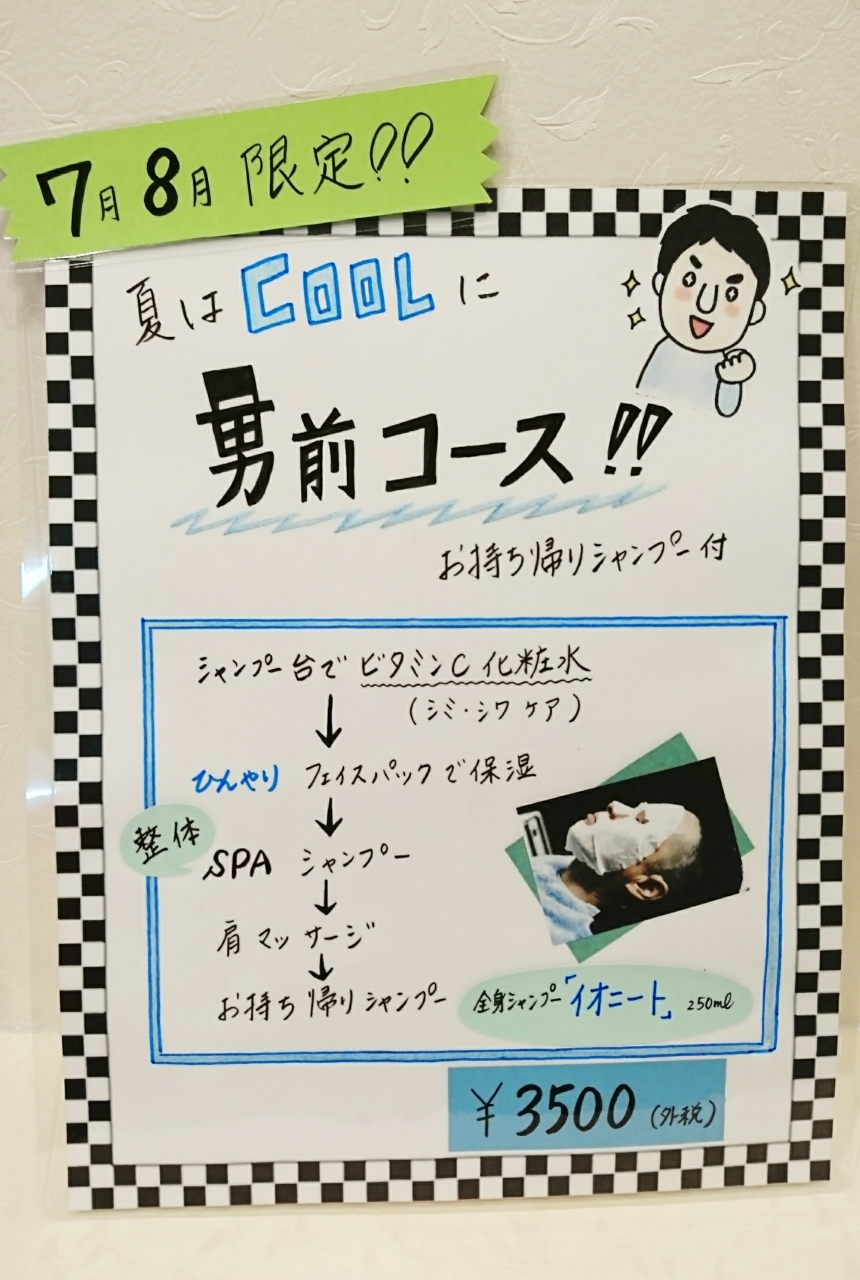 7月8月 限定!!
夏は COOL に
男前コース!!
お持ち帰りシャンプー付
シャンプー台で ビタミンC 化粧水
(シミ・シワ ケア)
↓
ひんやり フェイスパックで保湿
↓
整体
SPA シャンプー
↓
肩マッサージ
↓
お持ち帰りシャンプー 全身シャンプー「イオニート」 250ml
¥3500(外税)